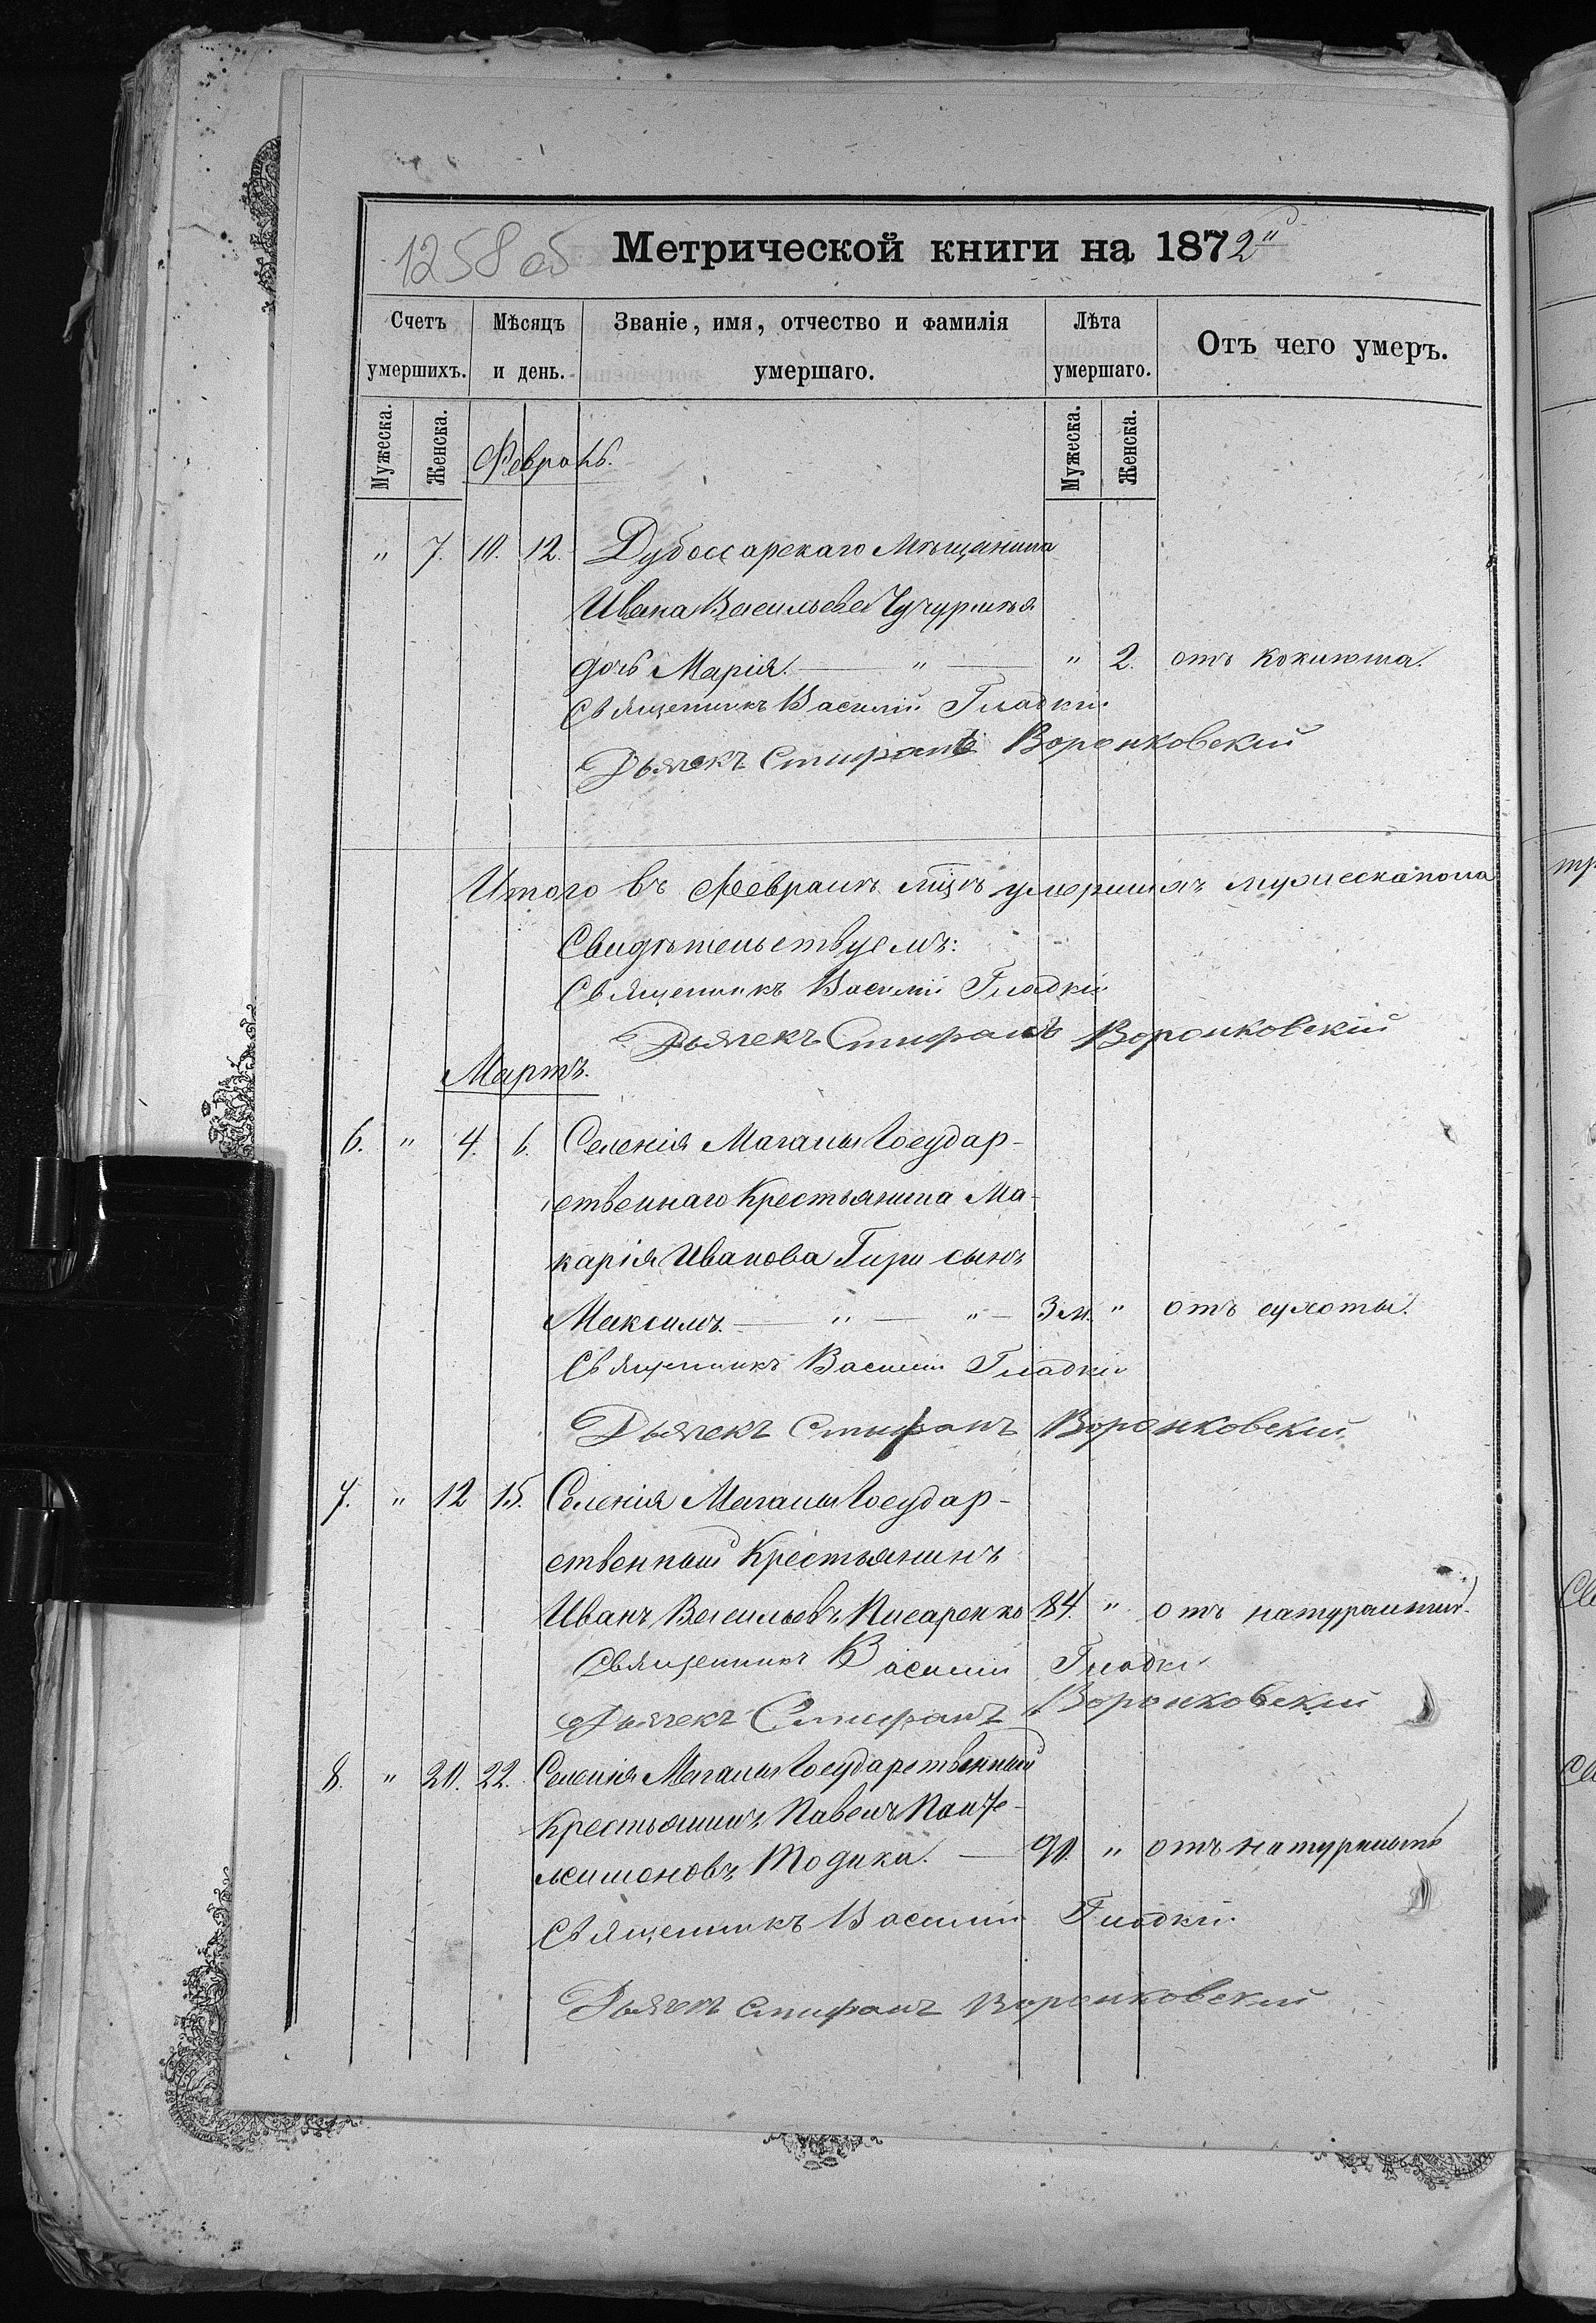 1258 об Метрической книги на 1872й
Счетъ умершихъ.
Мѣсяцъ и день.
Званіе, имя, отчество и фамилія умершаго.
Лѣта умершаго.
Отъ чего умеръ.
Мужеска. Женска. Мужеска. Женска.
Февраль.
" 7. 10. 12. Дубоссарскаго Мѣщанина
Ивана Васильева
дочь Марія. — " — " 2. отъ коклюша.
Священникъ Василій Гладкій
Дьячекъ Стифанъ Воронковскій
Итого въ Февралѣ мцѣ умершихъ мужеска пола
Свидѣтельствуемъ:
Священникъ Василій Гладкій
Дьячекъ Стифанъ Воронковскій
Мартъ.
6. " 4. 6. Селенія Маганы Государ-
ственнаго Крестьянина Ма-
карія Иванова Гири сынъ
Максимъ. — " — " — 3 м. " отъ сухоты.
Священникъ Василій Гладкій
Дьячекъ Стифанъ Воронковскій
7. " 12 15. Селенія Маганы Государ-
ственный Крестьянинъ
Иванъ Васильевъ Писаренко 84. " отъ натуральной.
Священникъ Василій Гладкій
Дьячекъ Стифанъ Воронковскій
8. " 20. 22. Селенія Маганы Государственный
Крестьянинъ Павелъ Панте-
лимоновъ Тодика. — 90. " отъ натуральной
Священникъ Василій Гладкій
Дьячекъ Стифанъ Воронковскій